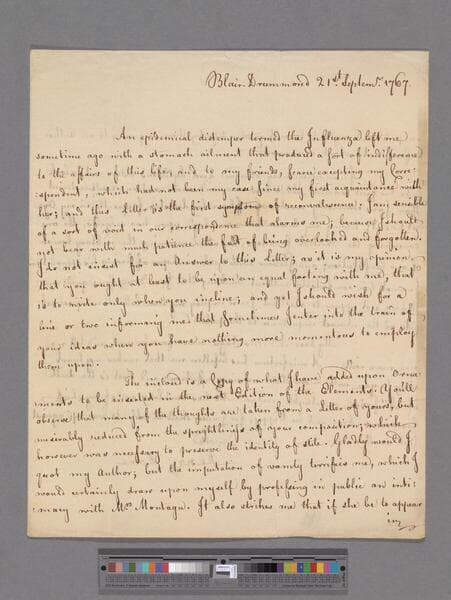 Blair Drummond 21st. Septemr. 1767.
An epidemical distemper termed the Influenza left me
sometime ago with a stomach ailment that produced a sort of indifference
to the affairs of this life, and to my friends, scarce excepting my Corre-
-spondent; which had not been my case since my first acquaintance with
her; and this Letter is the first symptom of reconvalescence. I am sensible
of a sort of void in our correspondence that alarms me; because I should
not bear with much patience the fact of being overlooked and forgotten.
I do not insist for an Answer to this Letter; as it is my opinion
that you ought at least to be upon an equal footing with me, that
is to write only when you incline; and yet I should wish for a
line or two informing me that sometimes I enter into the train of
your ideas when you have nothing more momentous to employ
them upon.
The inclosed is a Copy of what I have added upon Orna
ments to be inserted in the next Edition of the Elements. You'll
observe that many of the thoughts are taken from a Letter of yours, but
miserably reduced from the sprightliness of your composition; which
however was necessary to preserve the identity of stile. Gladly would I
quot my Author; but the imputation of vanity terrifies me, which I
would certainly draw upon myself by professing in public an inti-
macy with Mrs Montagu. It also strikes me that if she be to appear
in